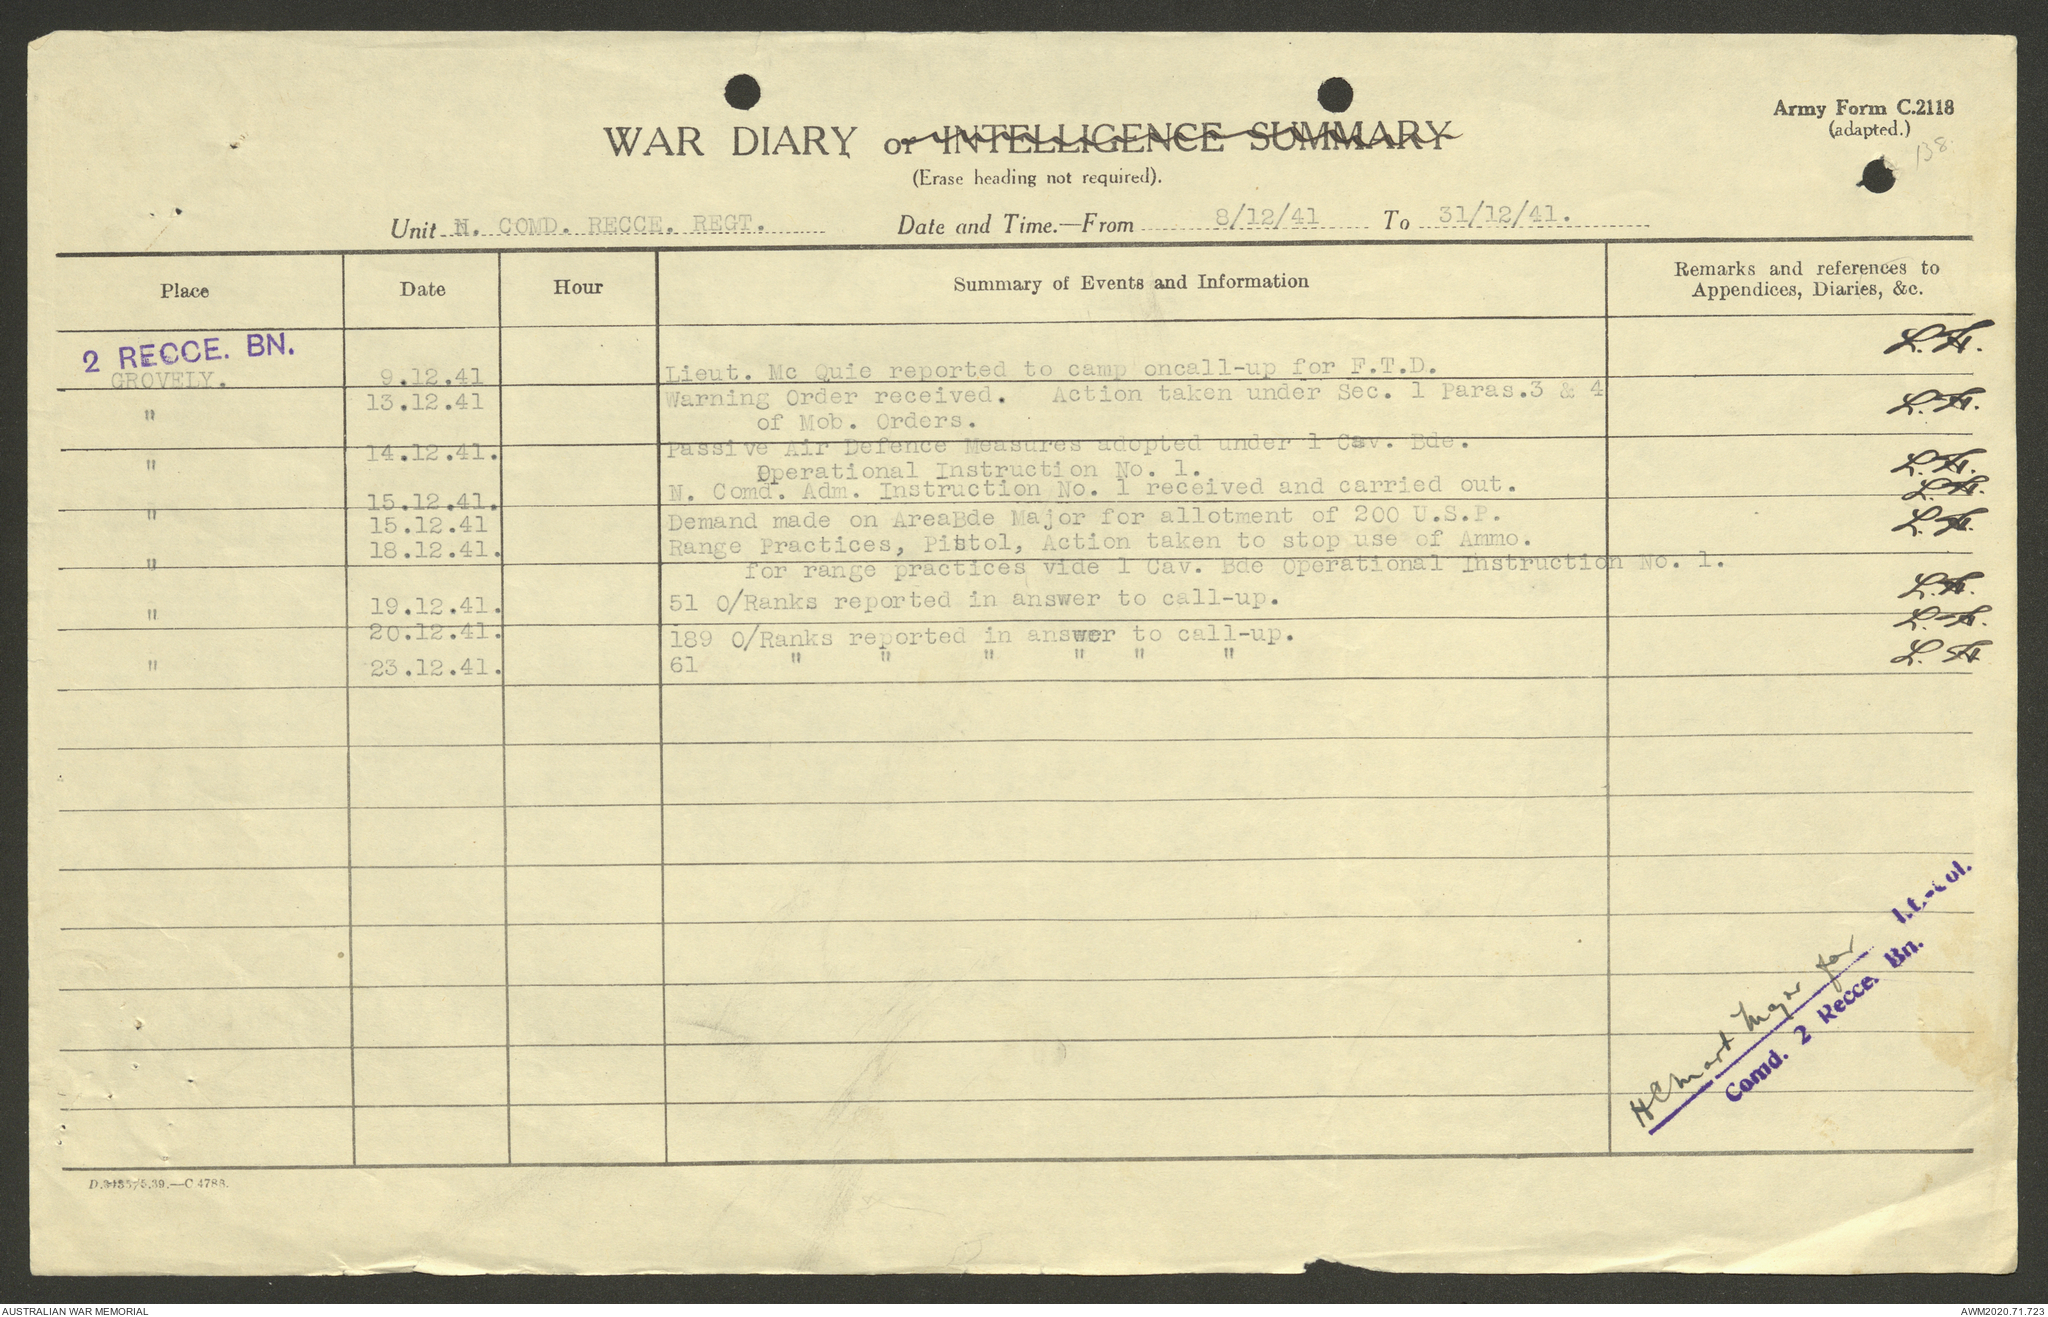 Army Form C.2118
(adapted.)
138.
WAR DIARY or INTELLIGENCE SUMMARY
(Erase heading not required).
Unit N. COMD. RECCE. REGT. Date and Time.—From 8/12/41 To 31/12/41.
Place Date Hour Summary of Events and Information Remarks and references to
Appendices, Diaries, &c.
2 RECCE. BN.
GROVELY. 9.12.41 Lieut. Mc Quie reported to camp oncall-up for F.T.D.
" 13.12.41 Warning Order received. Action taken under Sec. 1 Paras.3 & 4
of Mob. Orders.
" 14.12.41. Passive Air Defence Measures adopted under 1 Cav. Bde.
Operational Instruction No. 1.
15.12.41. N. Comd. Adm. Instruction No. 1 received and carried out.
" 15.12.41 Demand made on AreaBde Major for allotment of 200 U.S.P.
" 18.12.41. Range Practices, Pistol, Action taken to stop use of Ammo.
for range practices vide 1 Cav. Bde Operational Instruction No. 1.
" 19.12.41. 51 O/Ranks reported in answer to call-up.
20.12.41. 189 O/Ranks reported in answer to call-up.
" 23.12.41. 61 " " " " " "
HCMart Major for Lt.-Col.
Comd. 2 Recce. Bn.
D.3435/5.39.—C 4788.
AUSTRALIAN WAR MEMORIAL
AWM2020.71.723